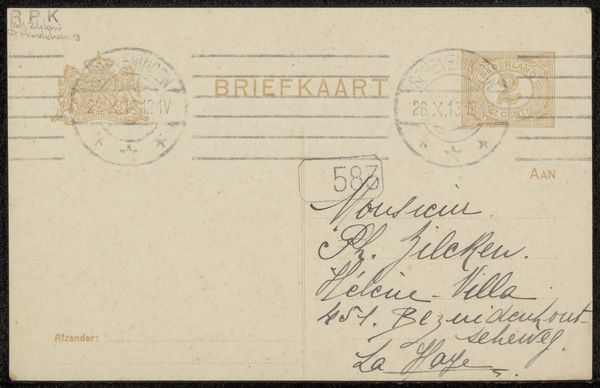 RPK
BRIEFKAART
26.X.13
NEDERLAND
2
CENT
AAN
583
Monsieur
Ph. Zilcken.
Hélène-Villa
451. Bezuidenhout-
scheweg.
La Haye
Afzender: